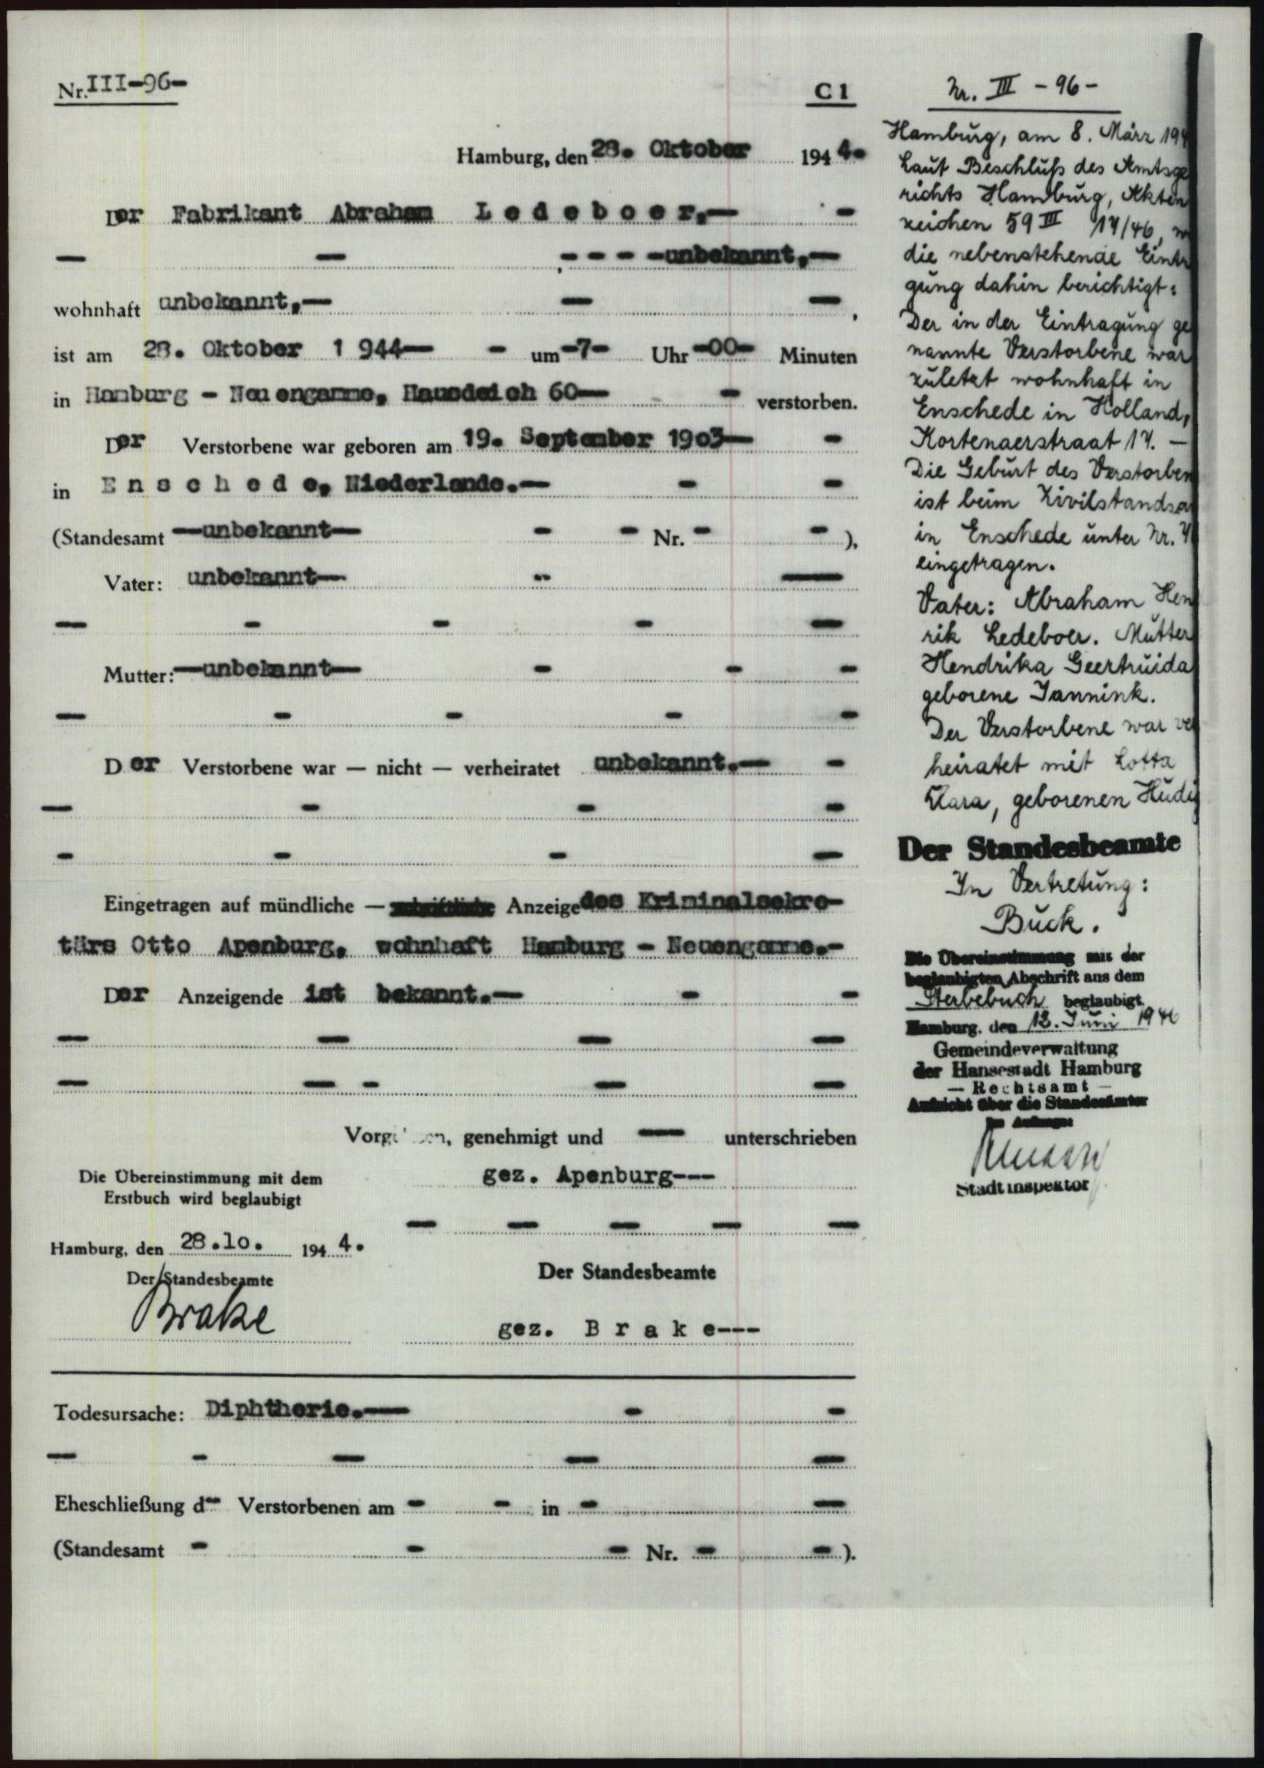 Nr. III-96-
C 1
Hamburg, den 28. Oktober 1944.
Der Fabrikant Abraham Ledeboer,— -
— — - - - -unbekannt,—
wohnhaft unbekannt,— — — ,
ist am 28. Oktober 1 944— - um -7- Uhr -00- Minuten
in Hamburg - Neuengamme, Hausdeich 60— - verstorben.
Der Verstorbene war geboren am 19. September 1903— -
in Enschede, Niederlande.— - -
(Standesamt —unbekannt— - - Nr. - - ),
Vater: unbekannt— - —
— - - - —
Mutter: —unbekannt— - - -
— - - - -
Der Verstorbene war — nicht — verheiratet unbekannt.— -
— - - -
- - - —
Eingetragen auf mündliche — schriftliche Anzeige des Kriminalsekre-
tärs Otto Apenburg, wohnhaft Hamburg - Neuengamme.-
Der Anzeigende ist bekannt.— - -
— — — —
— — - — —
Vorgelesen, genehmigt und — unterschrieben
gez. Apenburg---
— — — — —
Der Standesbeamte
gez. Brake---
Die Übereinstimmung mit dem
Erstbuch wird beglaubigt
Hamburg, den 28.10. 1944.
Der Standesbeamte
Brake
Todesursache: Diphtherie.— - -
— - — — —
Eheschließung d- Verstorbenen am - - in - —
(Standesamt - - - Nr. - - ).
Nr. III - 96 -
Hamburg, am 8. März 194
Laut Beschluß des Amtsge
richts Hamburg, Akten
zeichen 59 III 17/46, w
die nebenstehende Eintr
gung dahin berichtigt:
Der in der Eintragung ge
nannte Verstorbene war
zuletzt wohnhaft in
Enschede in Holland,
Kortenaerstraat 17. —
Die Geburt des Verstorben
ist beim Zivilstandsa
in Enschede unter Nr.
eingetragen.
Vater: Abraham Hen
rik Ledeboer. Mutter
Hendrika Geertruida
geborene Jannink.
Der Verstorbene war ver
heiratet mit Lotta
Clara, geborenen Hudig
Der Standesbeamte
In Vertretung:
Buck.
Die Übereinstimmung mit der
beglaubigten Abschrift aus dem
Sterbebuch beglaubigt
Hamburg, den 12. Juni 1946
Gemeindeverwaltung
der Hansestadt Hamburg
— Rechtsamt —
Aufsicht über die Standesämter
Im Auftrage:
Stadtinspektor